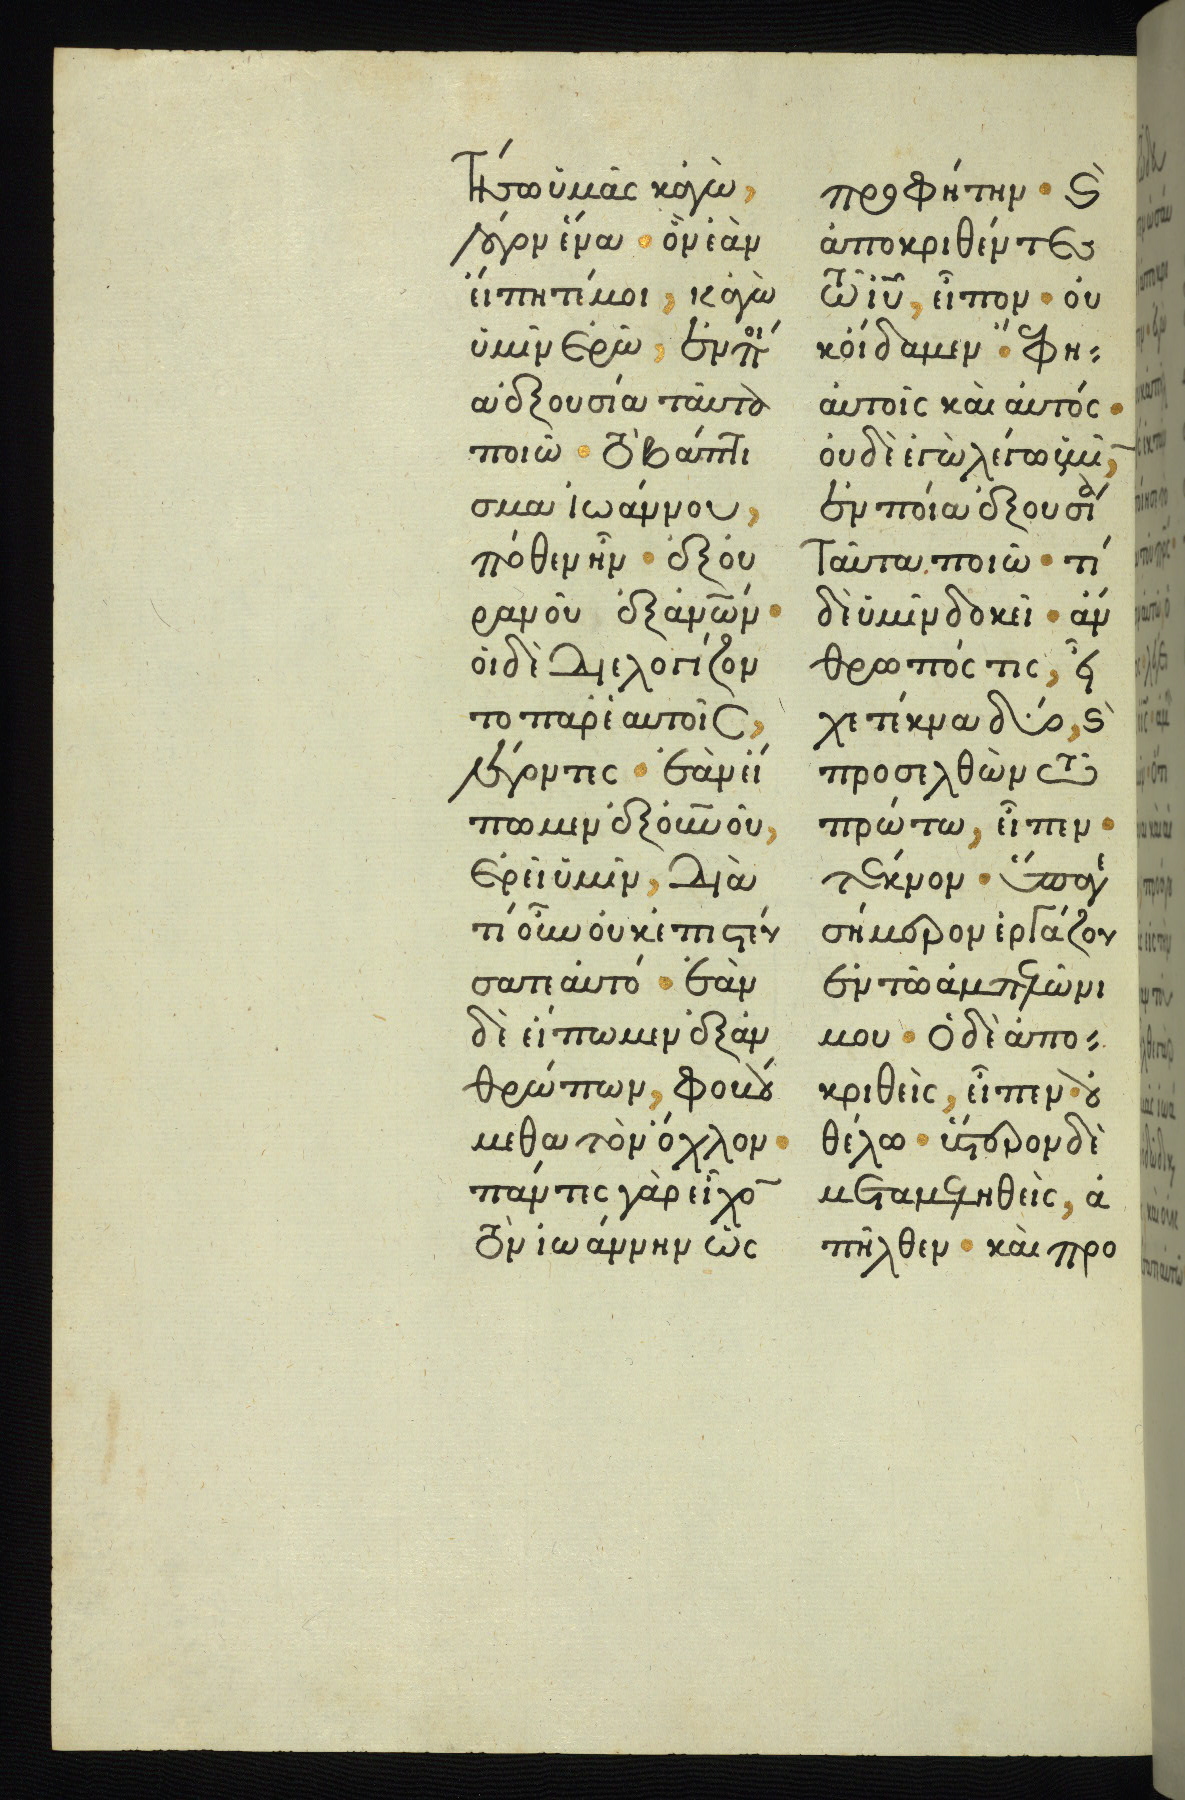 τήσω ὑμᾶς κἀγὼ,
λόγον ἕνα · ὃν ἐὰν
εἴπητέ μοι, κἀγὼ
ὑμῖν ἐρῶ, ἐν ποί
α ἐξουσία ταῦτα
ποιῶ · τὸ βάπτι
σμα ἰωάννου,
πόθεν ἦν · ἐξ οὐ
ρανοῦ ἐξ ἀνῶν ·
οἱ δὲ διελογίζον
το παρ' ἑαυτοῖς,
λέγοντες · ἐὰν εἴ
πωμεν ἐξ οὐνοῦ,
ἐρεῖ ὑμῖν, διὰ
τί οὖν οὐκ ἐπιστεύ
σατε αὐτό · ἐὰν
δὲ εἴπωμεν ἐξ ἀν
θρώπων, φοβού
μεθα τὸν ὄχλον ·
πάντες γὰρ εἶχο̄
τὸν ἰωάννην ὡς
προφήτην · καὶ
ἀποκριθέντες
τῶ ἰῦ, εἶπον · οὐ
κ οἴδαμεν · ἔφη
αὐτοῖς καὶ αὐτός ·
οὐδὲ ἐγὼ λέγω ὑμῖ̄,
ἐν ποία ἐξουσία
ταῦτα ποιῶ · τί
δὲ ὑμῖν δοκεῖ · ἄν
θρωπός τις, εἶ
χε τέκνα δύο, καὶ
προσελθὼν τῶ
πρώτω, εἶπεν ·
τέκνον · ὕπαγε
σήμερον ἐργάζου
ἐν τῶ ἀμπελῶνι
μου · ὁ δὲ ἀπο
κριθεὶς, εἶπεν · οὐ
θέλω · ὕστερον δὲ
μεταμεληθεὶς, ἀ
πῆλθεν · καὶ προ